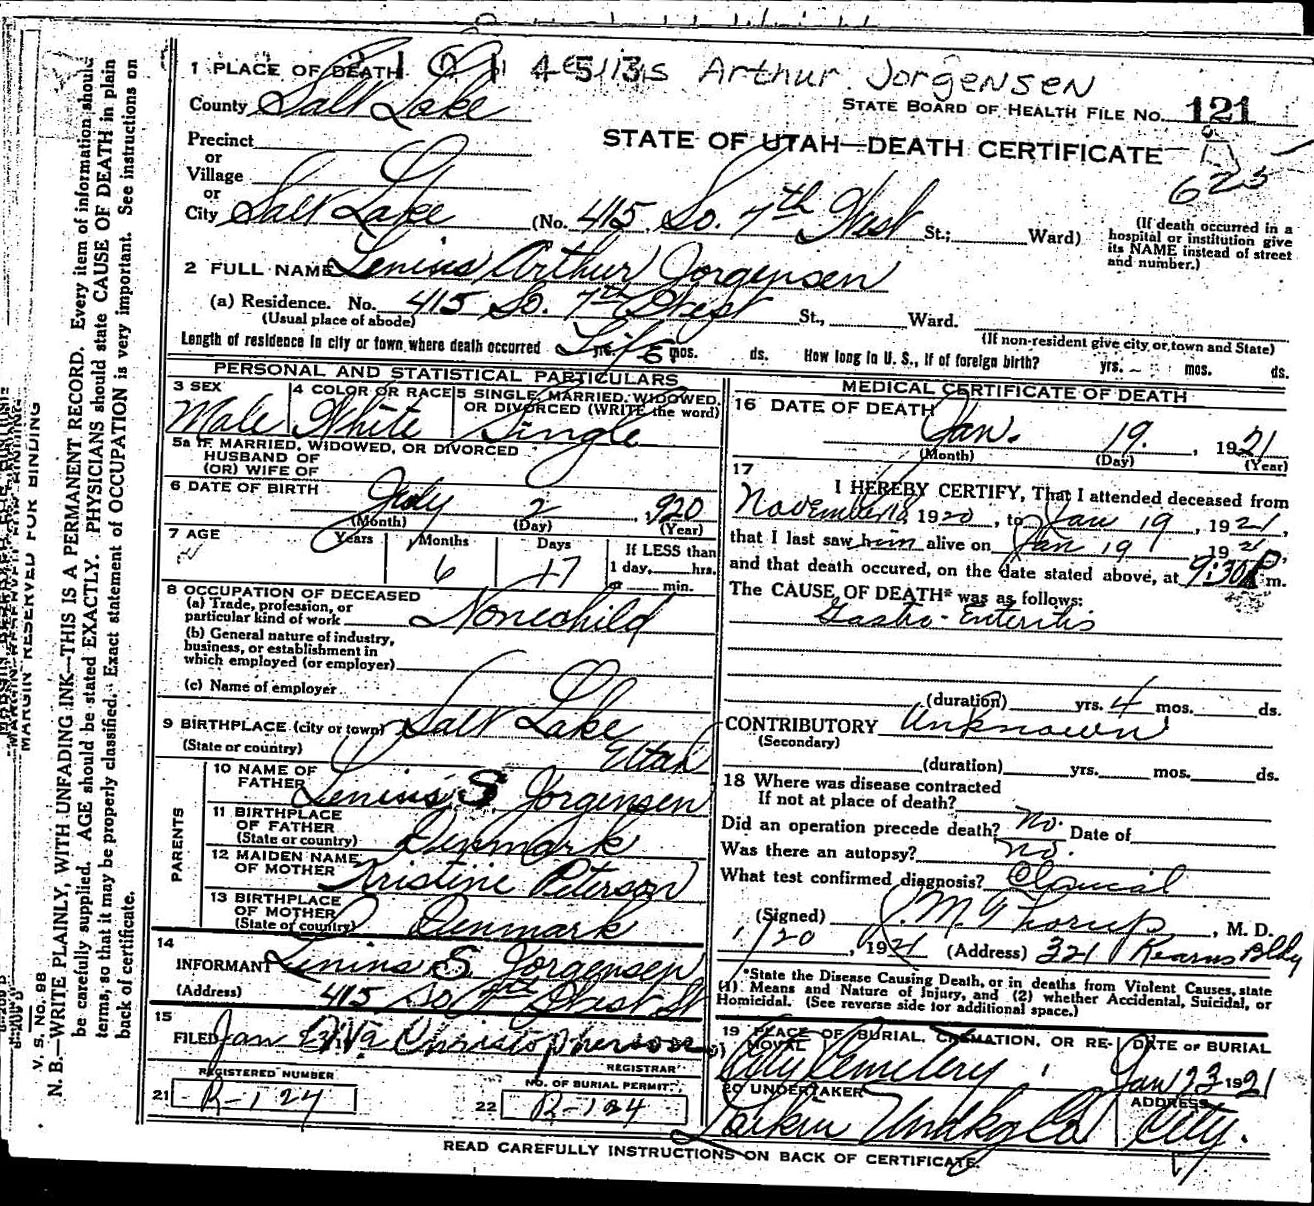 1 PLACE OF DEATH 2 1 0 1 4 5 1 3 Arthur Jorgensen
County Salt Lake
STATE BOARD OF HEALTH FILE No. 121
STATE OF UTAH—DEATH CERTIFICATE
623
Precinct
or
Village
or
City Salt Lake (No. 415 So. 7th West St.; Ward)
(If death occurred in a
hospital or institution give
its NAME instead of street
and number.)
2 FULL NAME Lenius Arthur Jorgensen
(a) Residence. No. 415 So. 7th West St., Ward.
(Usual place of abode) (If non-resident give city or town and State)
Length of residence in city or town where death occurred Life yrs. 6 mos. ds. How long in U. S., if of foreign birth? yrs. mos. ds.
PERSONAL AND STATISTICAL PARTICULARS
3 SEX Male
4 COLOR OR RACE White
5 SINGLE, MARRIED, WIDOWED,
OR DIVORCED (WRITE the word)
Single
5a IF MARRIED, WIDOWED, OR DIVORCED
HUSBAND OF
(OR) WIFE OF
6 DATE OF BIRTH July 2, 1920
(Month) (Day) (Year)
7 AGE Years Months Days If LESS than
6 17 1 day, hrs.
or min.
8 OCCUPATION OF DECEASED
(a) Trade, profession, or
particular kind of work None child
(b) General nature of industry,
business, or establishment in
which employed (or employer)
(c) Name of employer
9 BIRTHPLACE (city or town) Salt Lake
(State or country) Utah
PARENTS
10 NAME OF
FATHER Lenius S Jorgensen
11 BIRTHPLACE
OF FATHER
(State or country) Denmark
12 MAIDEN NAME
OF MOTHER Kristine Peterson
13 BIRTHPLACE
OF MOTHER
(State or country) Denmark
14
INFORMANT Lenius S Jorgensen
(Address) 415 So 7th West St
15
FILED Jan Christopherson
REGISTRAR
REGISTERED NUMBER
21 R-124
NO. OF BURIAL PERMIT
22 R-124
MEDICAL CERTIFICATE OF DEATH
16 DATE OF DEATH
Jan. 19, 1921
(Month) (Day) (Year)
17
I HEREBY CERTIFY, That I attended deceased from
November 18, 1920, to Jan 19, 1921,
that I last saw him alive on Jan 19, 1921,
and that death occured, on the date stated above, at 9:30 P. m.
The CAUSE OF DEATH* was as follows:
Gastro-Enteritis
(duration) yrs. 4 mos. ds.
CONTRIBUTORY Unknown
(Secondary)
(duration) yrs. mos. ds.
18 Where was disease contracted
If not at place of death?
Did an operation precede death? no. Date of
Was there an autopsy? no.
What test confirmed diagnosis? Clinical
(Signed) J. M. G Thorup, M. D.
1/20, 1921 (Address) 321 Kearns Bldg
*State the Disease Causing Death, or in deaths from Violent Causes, state
(1) Means and Nature of Injury, and (2) whether Accidental, Suicidal, or
Homicidal. (See reverse side for additional space.)
19 PLACE OF BURIAL, CREMATION, OR RE-
MOVAL City Cemetery
DATE OF BURIAL
Jan 23 1921
20 UNDERTAKER
Larkin Undkg Co
ADDRESS
City.
READ CAREFULLY INSTRUCTIONS ON BACK OF CERTIFICATE.
V. S. No. 98
MARGIN RESERVED FOR BINDING
N. B.—WRITE PLAINLY, WITH UNFADING INK—THIS IS A PERMANENT RECORD. Every item of information should
be carefully supplied. AGE should be stated EXACTLY. PHYSICIANS should state CAUSE OF DEATH in plain
terms, so that it may be properly classified. Exact statement of OCCUPATION is very important. See instructions on
back of certificate.